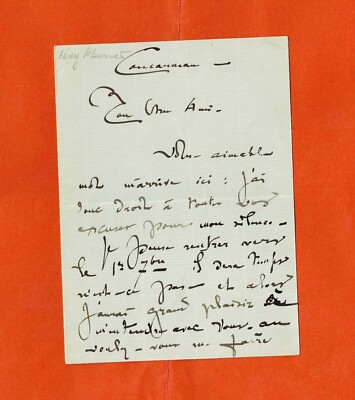 Concarneau —
Mon Cher Ami —
Votre aimable
mot m'arrive ici : j'ai
donc droit à toutes vos
excuses pour mon silence.
Je pense rentrer vers
le 1er 7bre il sera temps
n'est-ce pas — et alors
j'aurai grand plaisir à
m'entendre avec vous. au
voulez-vous me faire